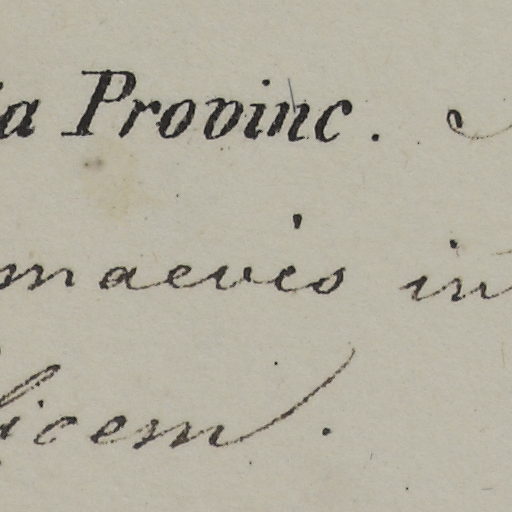 ia Provinc.
maevis in
licem.